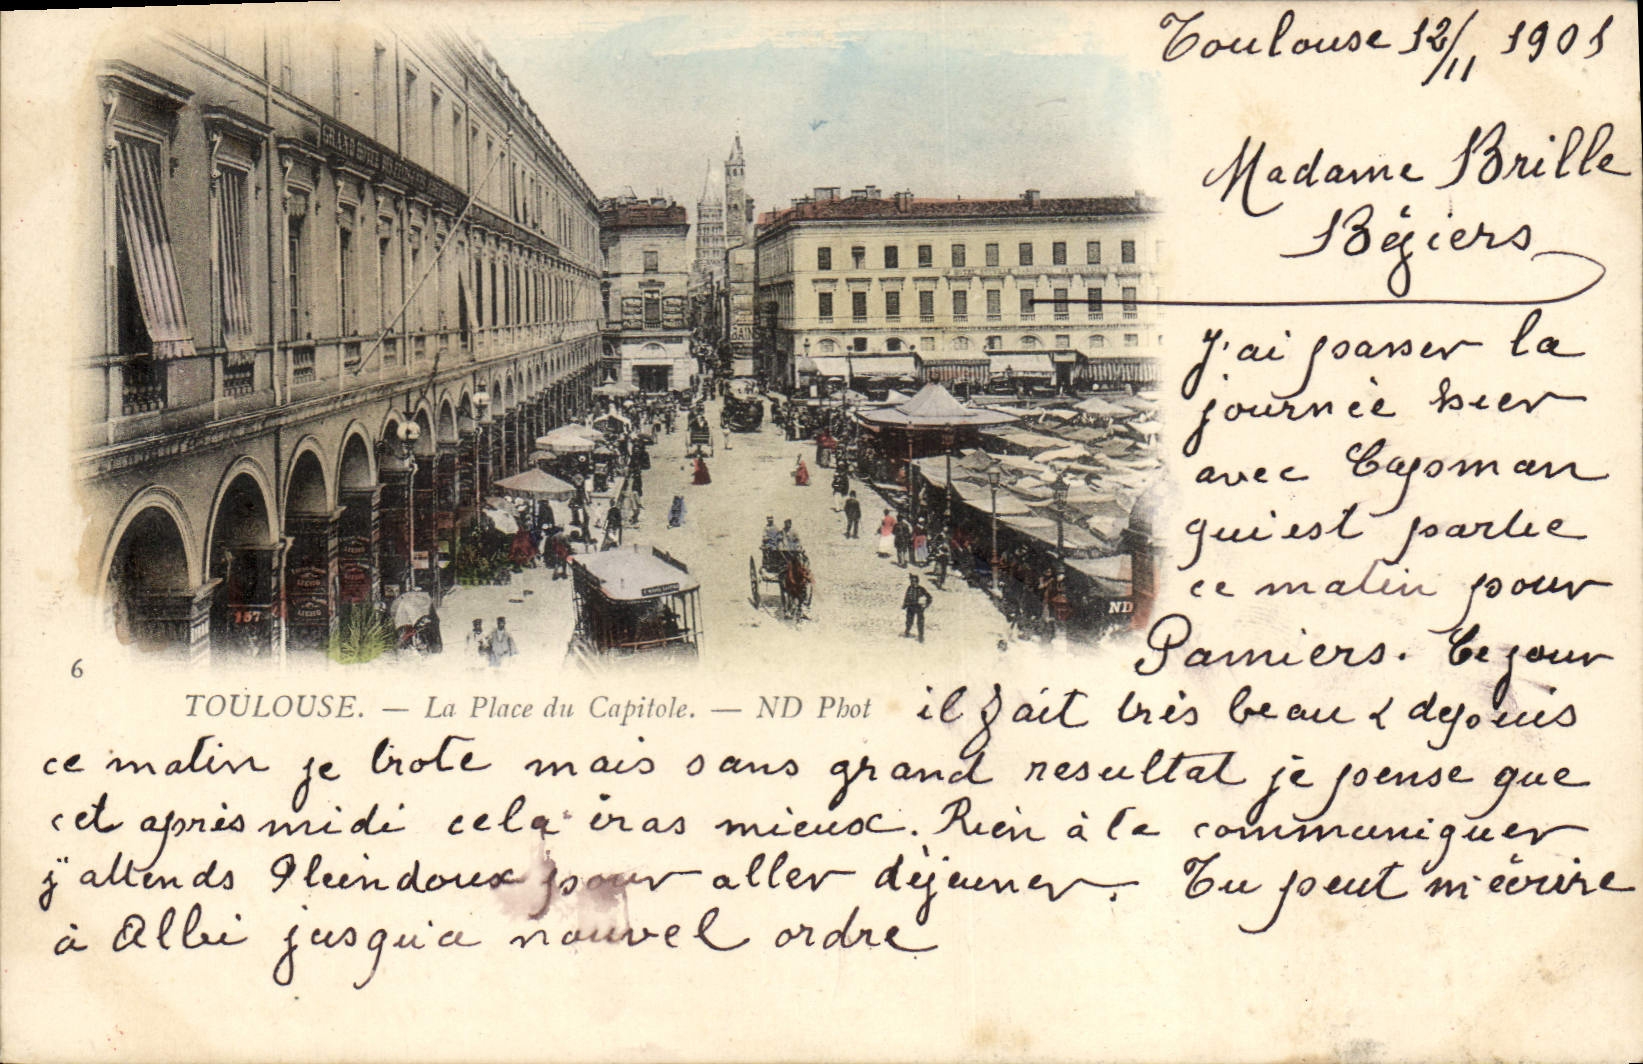 Toulouse 12/11 1901
Madame Brille
Béziers
J'ai passer la
journèe hier
avec Capsman
qui est partie
ce matin pour
Pamiers. Ce jour
il fait très beau & depuis
ce matin je trote mais sans grand resultat je pense que
cet après midi cela iras mieux. Rien à te communiquer
j'attends Pleindoux pour aller dèjeuner. Tu peut m'écrire
à Albi jusqu'a nouvel ordre
GRAND HOTEL
BAINS
157
ND
6
TOULOUSE. — La Place du Capitole. — ND Phot